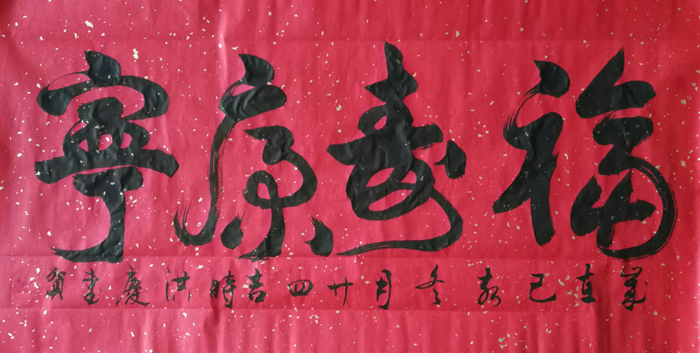 福寿康宁
岁在己亥冬月廿四吉時洪慶書賀